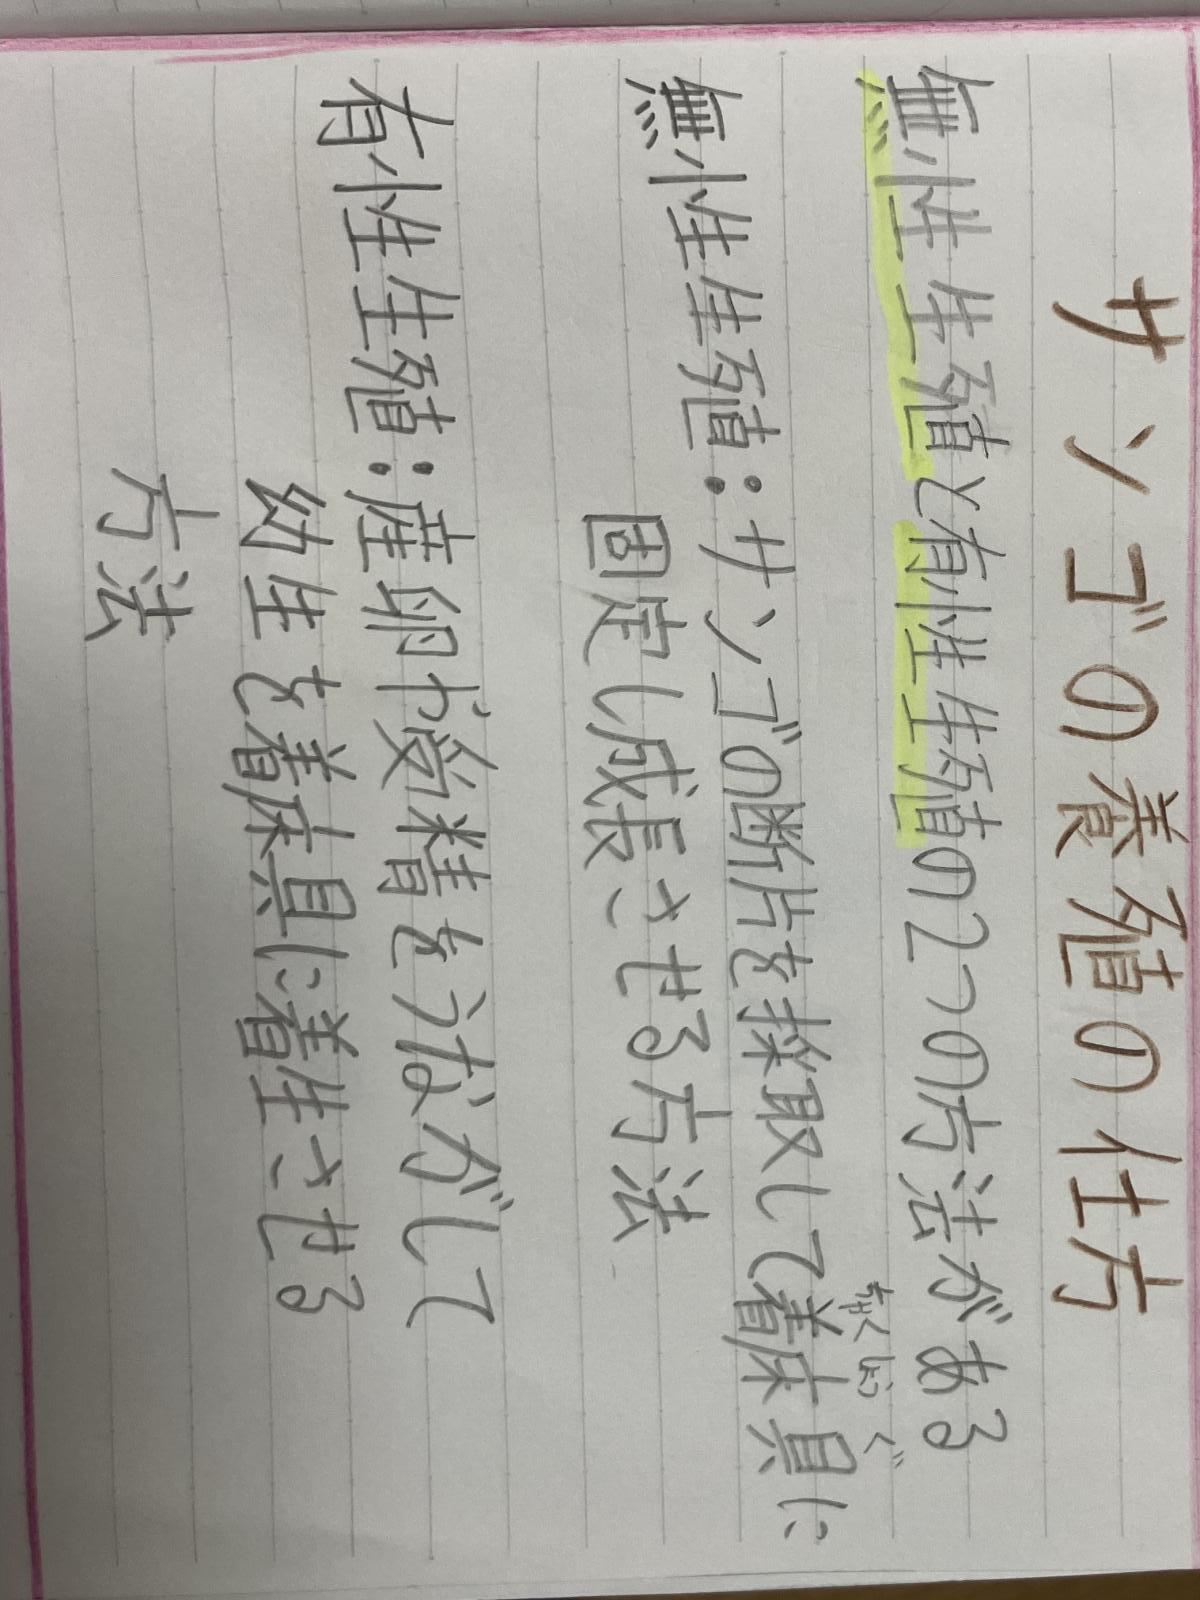 サンゴの養殖の仕方
無性生殖と有性生殖の2つの方法がある
無性生殖:サンゴの断片を採取して着床具に
ちゃくしょうぐ
固定し成長させる方法
有性生殖:産卵や受精をうながして
幼生を着床具に着生させる
方法